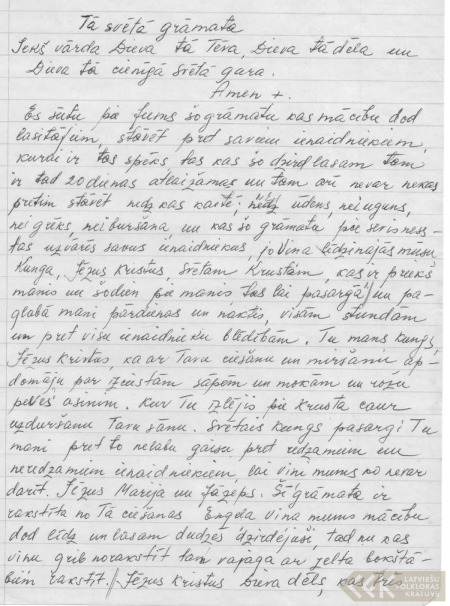 Tā svētā grāmata
Iekš vārda Dieva tā Tēva, Dieva tā dēla un
Dieva tā cienīgā svētā gara.
Amen +.
Es sūtu pie Jums šo grāmatu kas mācību dod
lasītājiem, stāvēt pret saviem ienaidniekiem,
kurai ir tas spēks tas kas šo dzird lasam tam
ir tad 20 dienas atlaižamas un tam arī nevar nekas
pretim stāvēt nedz kas kaitē; nedz ūdens, nei uguns,
nei grēks, nei buršana, un kas šo grāmatu pie sevis ness-
tas uzvarēs savus ienaidniekus, jo Viņa līdzinājās mūsu
Kunga, Jēzus Kristus, Svētam Krustam, kas ir priekš
manis un šodien pie manis, tas lai pasargā un pa-
glabā mani par dienas un naktis, visām stundām
un pret visu ienaidnieku blēdībām. Tu mans kungs,
Jēzus Kristus, ka ar Tavu ciešanu un miršanu ap-
domāju par izciestām sāpēm un mokām un rožu
asinīm. Kur Tu izlējis pie Krusta caur
uzduršanu Tavu sānu. Svētais kungs pasargi Tu
mani pret to nelabu gaisu pret redzamiem un
neredzamiem ienaidniekiem lai viņi mums ko nevar
darīt. Jēzus Marija un Jāzeps. Šī grāmata ir
rakstīta no Tā ciešanas, viņa mums mācību
dod līdz un lasam dudzes dzirdējuši, tad nu kas
viņu grib norakstīt tam vajaga ar zelta bokstā-
biem rakstīt. // Jēzus Kristus Dieva dēls, kas
LATVIEŠU
FOLKLORAS
KRĀTUVE